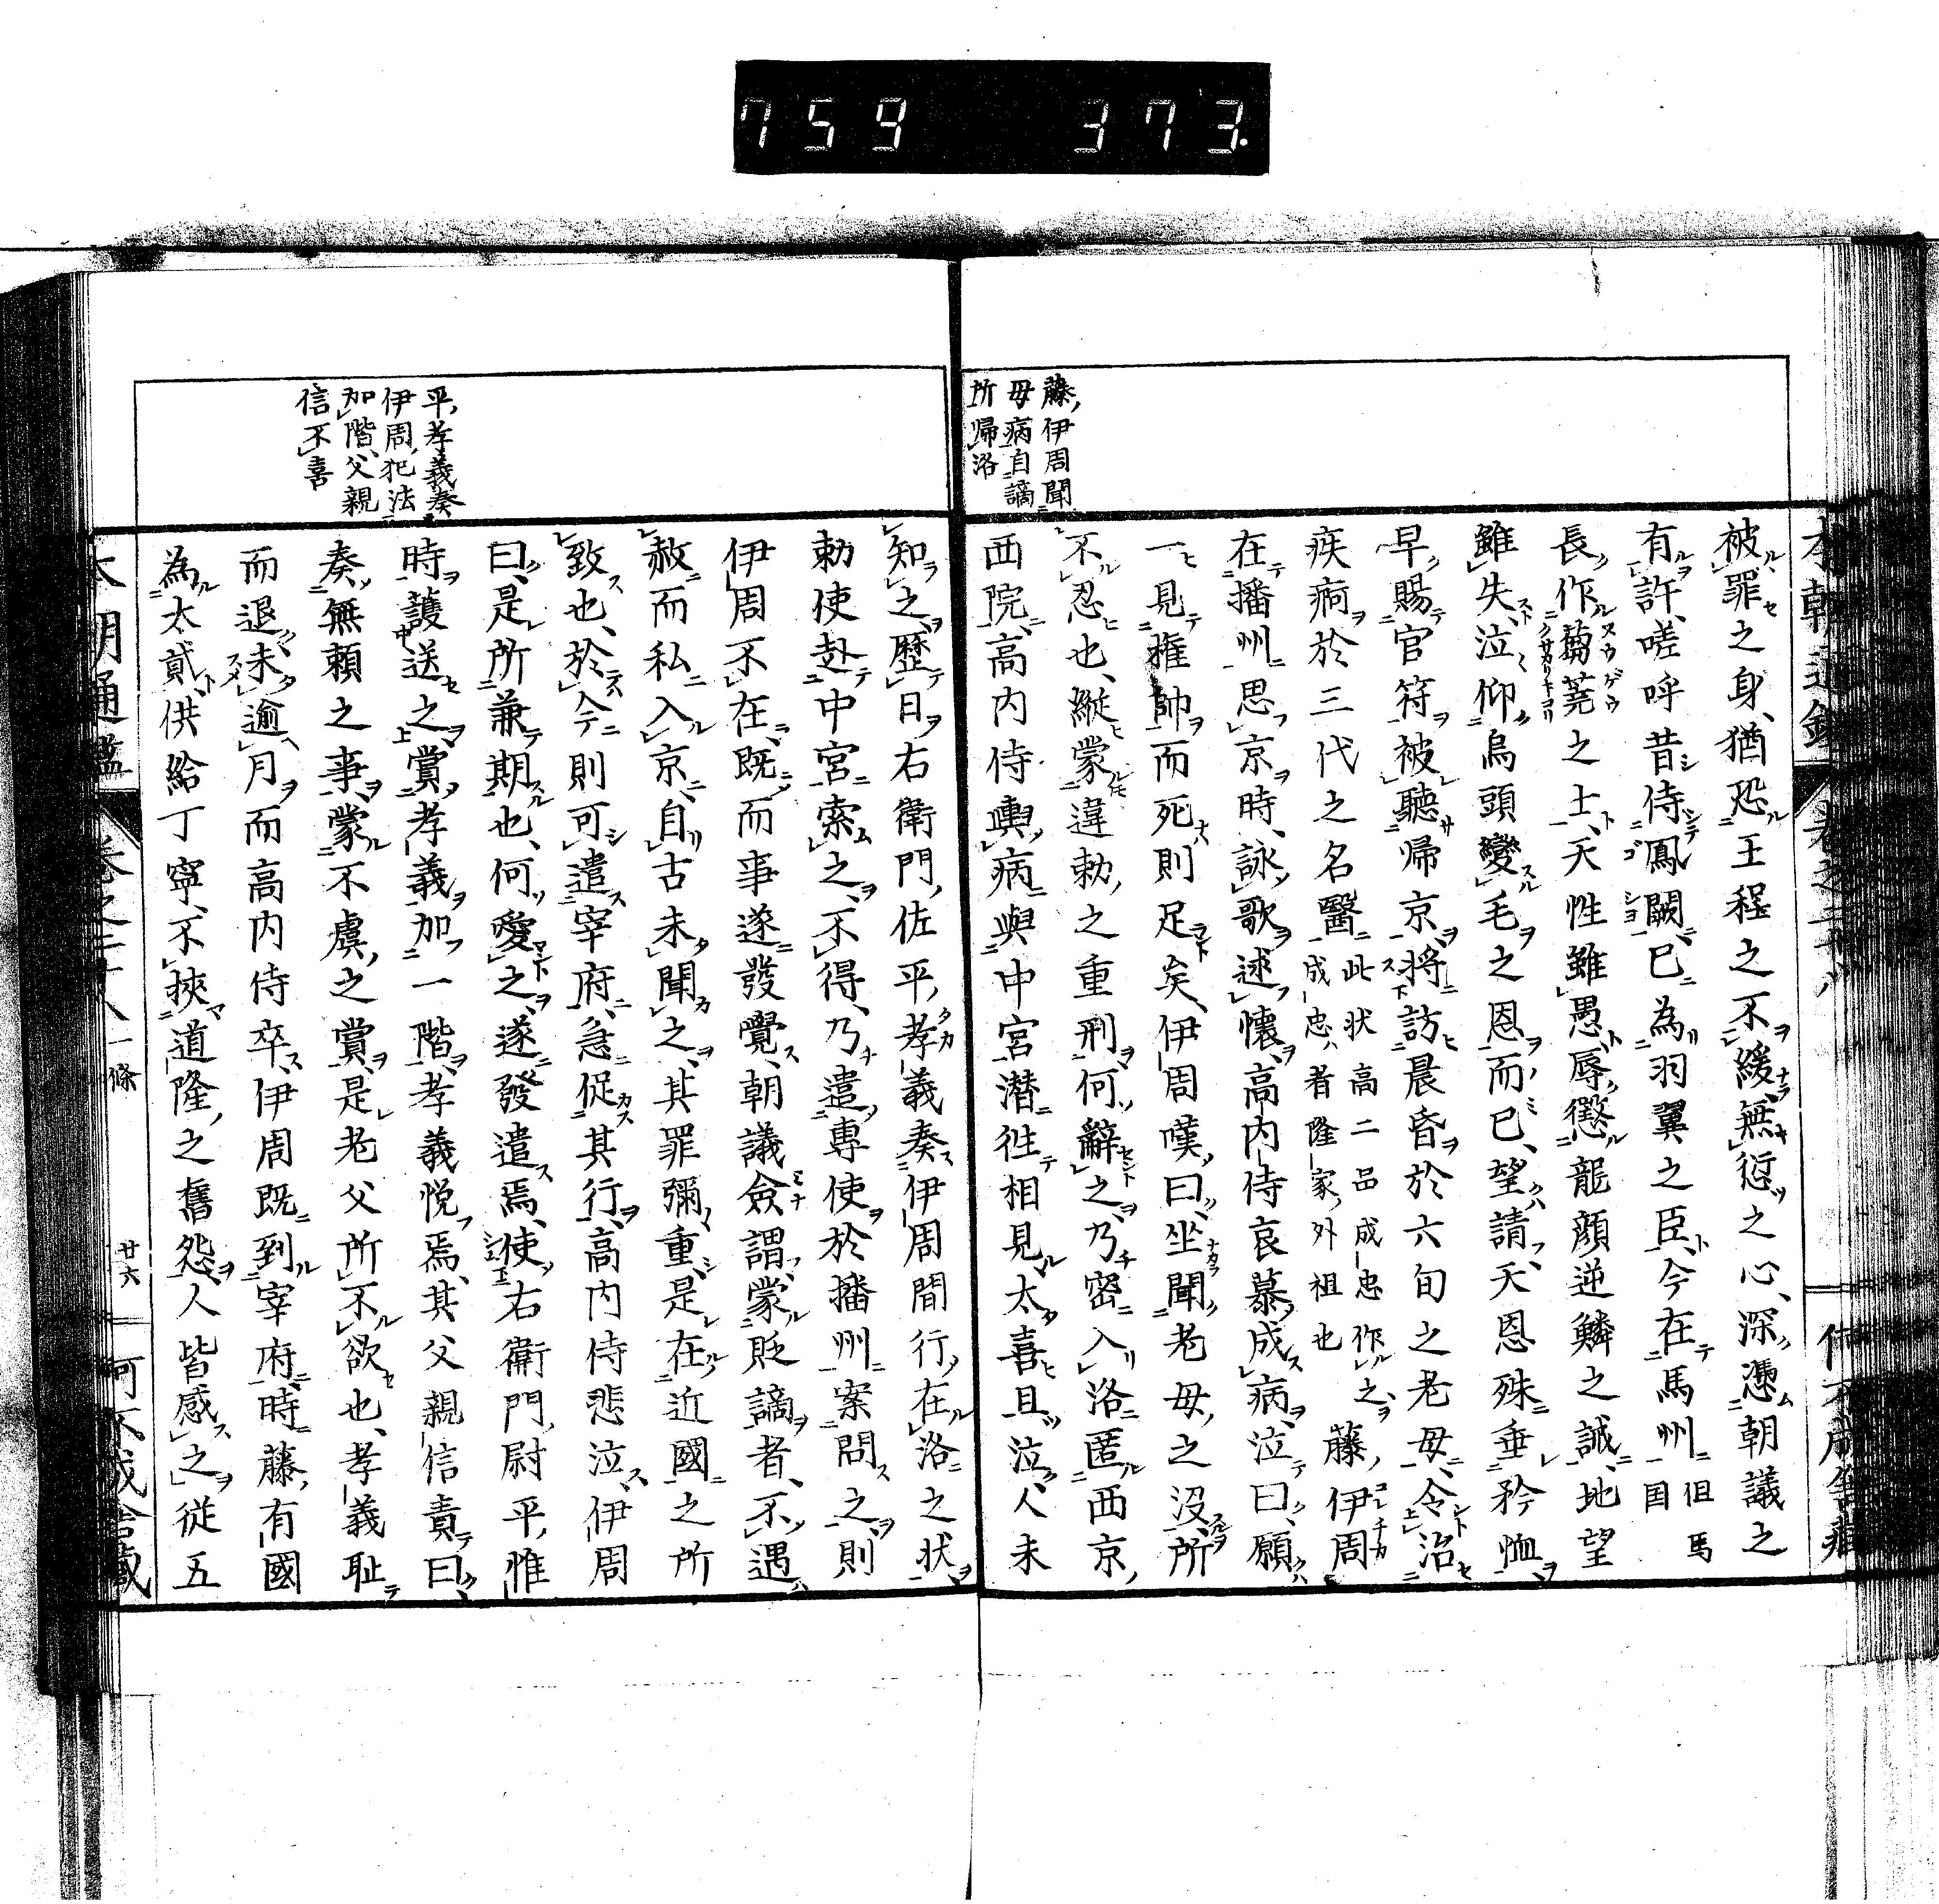 759 373.
本朝通鑑 卷之二十八
藤伊周聞
母病自謫
所帰洛
被罪之身、猶恐王程之不緩、無愆之心、深憑朝議之
有許、嗟呼昔侍鳳闕已為羽翼之臣、今在馬州 但馬国
長作蒭蕘之士、天性雖愚、辱懲龍顔逆鱗之誠、地望
雖失、泣仰烏頭變毛之恩而已、望請、天恩殊垂矜恤
早賜官符、被聽帰京、将訪晨昏於六旬之老母、令治
疾痾於三代之名醫 此状高二品成忠作之 成忠者隆家外祖也 藤伊周
在播州思京時、詠歌述懐、高内侍哀慕成病、泣曰、願
一見権帥而死則足矣、伊周嘆曰、坐聞老母之没、所
不忍也、縦蒙違勅之重刑何辭之、乃密入洛匿西京
西院、高内侍輿病與中宮潜往相見、太喜且泣、人未
知之、歴日右衛門佐平孝義奏伊周間行在洛之状
勅使赴中宮索之、不得、乃遣專使於播州案問之、則
伊周不在、既而事遂發覺、朝議僉謂、蒙貶謫者、不遇
赦而私入京、自古未聞之、其罪彌重、是在近國之所
致也、於今則可遣宰府、急促其行、高内侍悲泣、伊周
曰、是所兼期也、何愛之、遂發遣焉、使右衛門尉平惟
時護送之、賞孝義加一階、孝義悦焉、其父親信責曰、
奏無頼之事、蒙不虞之賞、是老父所不欲也、孝義耻
而退、未逾月而高内侍卒、伊周既到宰府、時藤有國
為太貳、供給丁寧、不挾道隆之舊怨、人皆感之、従五
平孝義奏
伊周犯法
加階、父親
信不喜
本朝通鑑 卷之二十八 一條 廿六